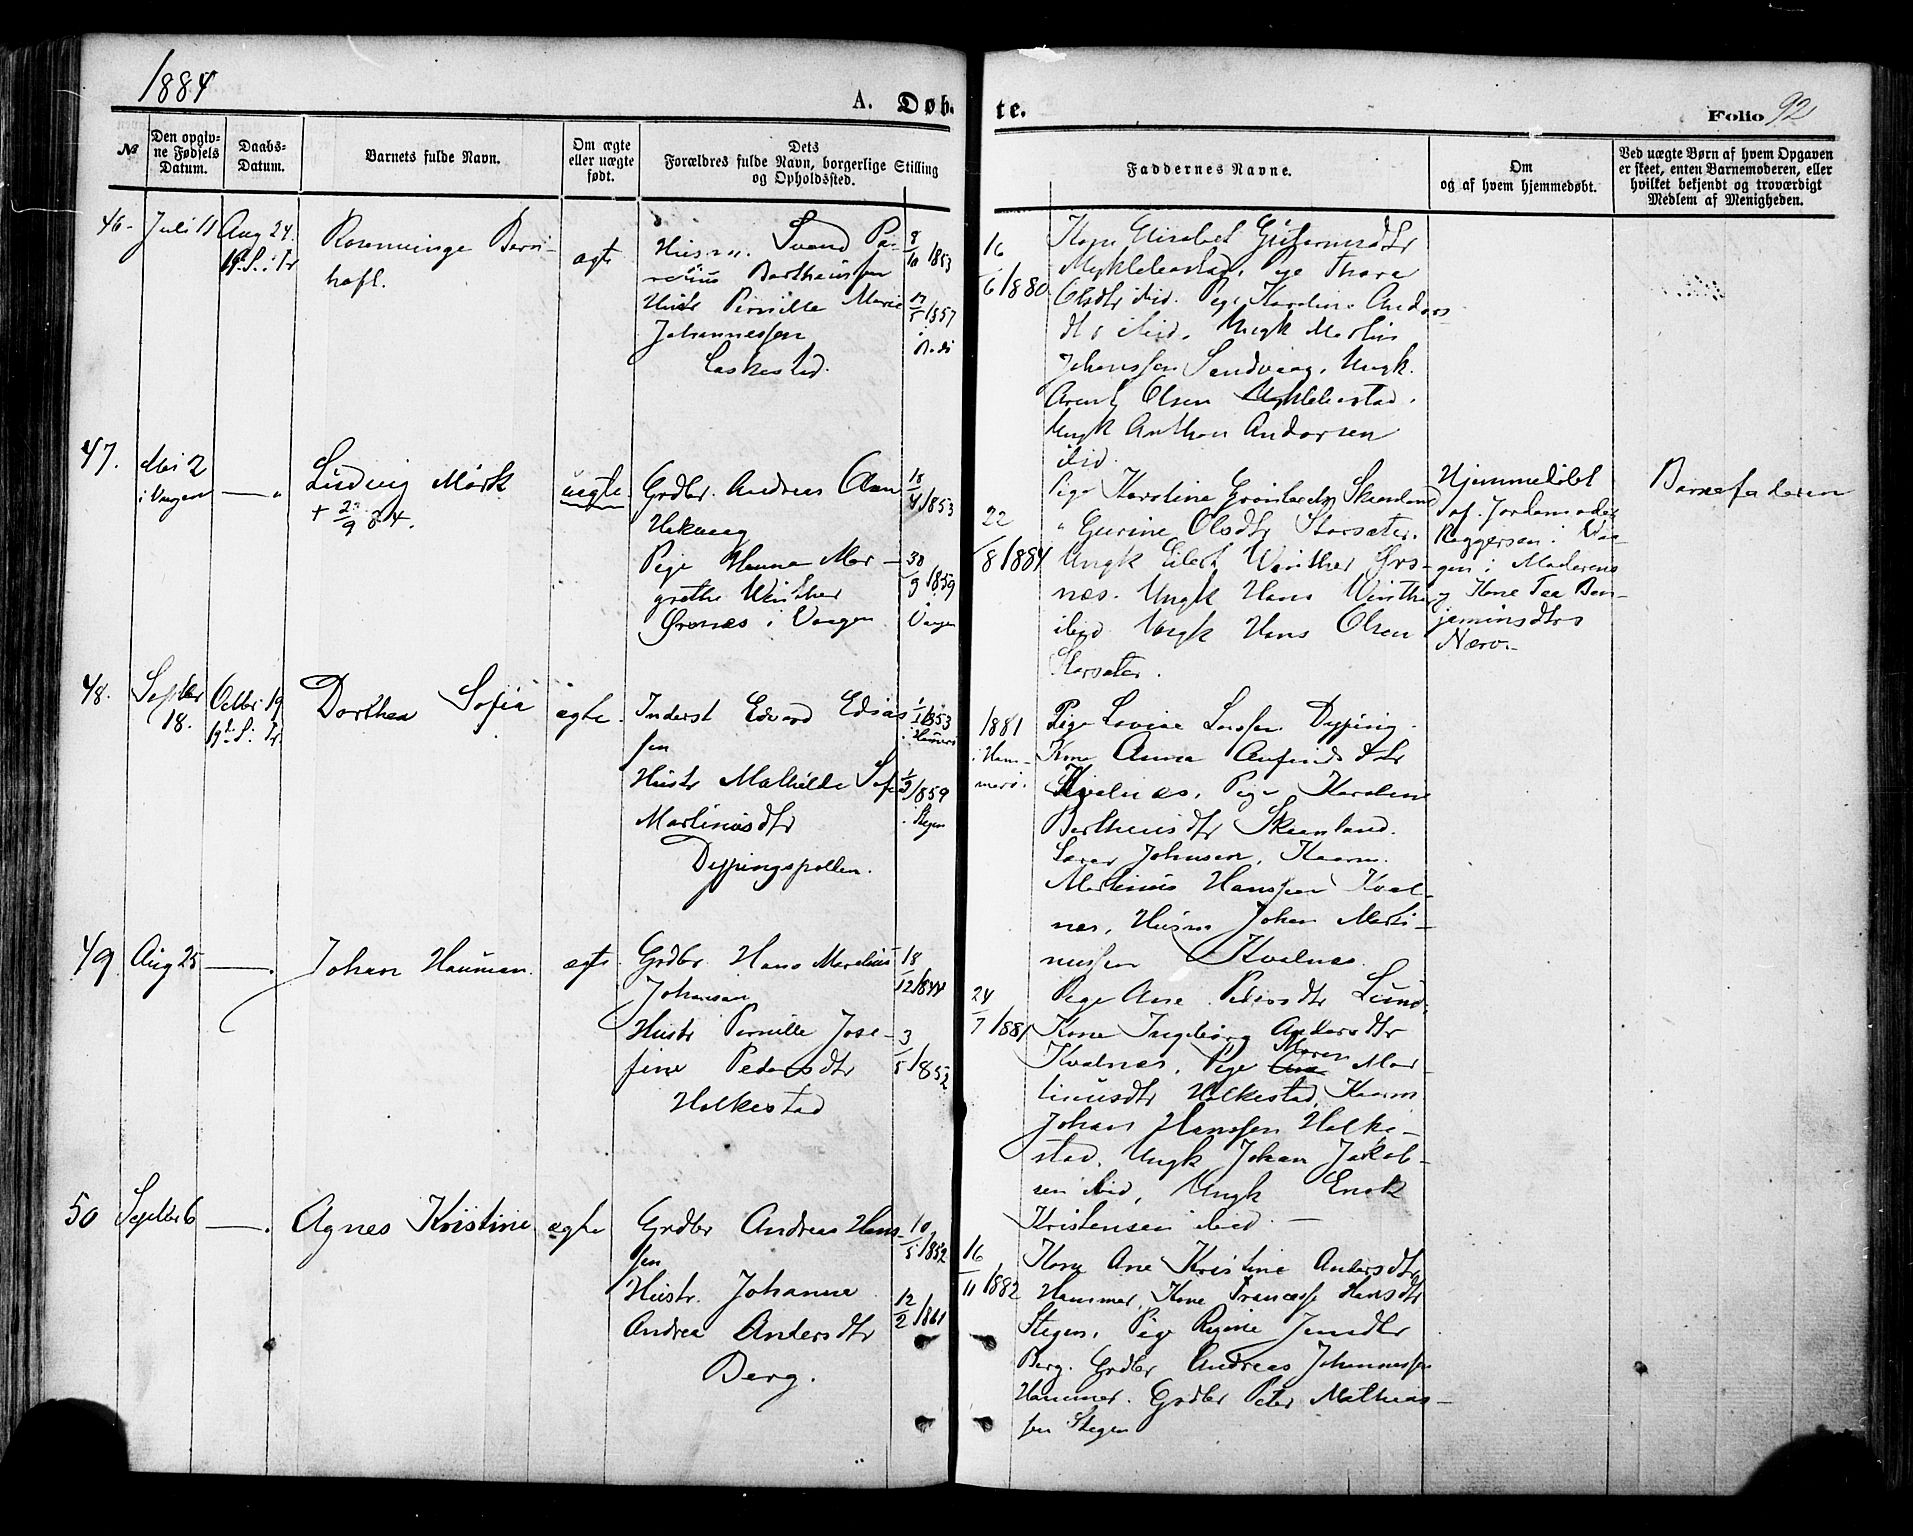 1884
A. Døb-
te.
Folio 92
№
Den opgiv-
ne Fødsels
Datum.
Daabs-
Datum.
Barnets fulde Navn.
Om ægte
eller uægte
født.
Dets
Forældres fulde Navn, borgerlige Stilling
og Opholdssted.
Faddernes Navne.
Om
og af hvem hjemmedøbt.
Ved uægte Børn af hvem Opgaven
er skeet, enten Barnemoderen, eller
hvilket bekjendt og troværdigt
Medlem af Menigheden.
46.
Juli 11
Aug 24.
Rosenvinge Bern-
hoft.
ægte
Husm. Svend Pe-
Bertheussen
Hustr Pernille Marie
Johannessen
Laskestad.
8/10 1853
1857
16/6 1880
Kone Elisabet
Myklebostad, Pige Thora
Olsdtr ibid. Pige Karoline Anders
dtr ibid. Ungk Martin
Johanssen Sandvaag, Ungk.
Arent Olsen Myklebostad.
Ungk Anthon Andersen
ibid.
47.
Mai 2
i Vaagen
—„
Ludvig Mørk
uægte
Grdbr. Andreas
Pige Hanna Mar-
grethe Winther
Ørsnes i Vaagen
18/4 1853
30/9 1859
i
Vaagen
22/8 1884
Pige Karoline Skaanland
„ Gurine Olsdtr Storsæter.
Ungk Eilert Winther Ørs-
nes. Ungk Hans Winther
ibid Ungk Hans Olsen
Storsæter.
Hjemmedøbt
af Jordemoder
i Vaa-
gen i Moderens
og Kone Benjaminsdtrs
Nærv.
Barnefaderen
48.
Septbr
18.
Octbr 19
19de S. Tr
Dorthea Sofie
ægte
Inderst Edvard Edias
sen
Hustr Mathilde Sofie
Martinusdtr
Dyppingspollen.
1853
1859
i Stegen
1881
i Ham-
merø.
Pige Lovise Dypping.
Kone Anna Anfindsdtr
Kvalnes, Pige Karoline
Bertheusdtr Skaanland.
Johnsen, Kaarm.
Martinus Hanssen Kval-
nes, Husm Johan Marti-
nussen Kvalnes.
49
Aug 25
—.
Johan Hauman.
ægte
Grdbr. Hans Marelius
Johansen
Hustr Pernille Jose-
fine Pedersdtr
Holkestad
18/12 1844
3/5 1852
24/7 1881
Pige Ane Pedersdtr Lund.
Kone Ingeborg Andersdtr
Kvalnes, Pige Maren Mar-
tinusdtr Holkestad, Kaarm
Johan Hanssen Holke-
stad, Ungk Johan Jakob-
sen ibid, Ungk Enok
Kristensen ibid. —
50
Septbr 6
—.
Agnes Kristine
ægte
Grdbr Andreas Hans-
sen
Hustr. Johanna
Andrea Andersdtr
Berg.
10/5 1852
12/2 1861
16/11 1882
Kone Ane Kristine Andersdtr
Hammer, Kone Hansdtr
Stegen, Pige Regine Jensdtr
Berg. Grdbr Andreas Johannessen
Hammer. Grdbr Peter Mathias-
sen Stegen